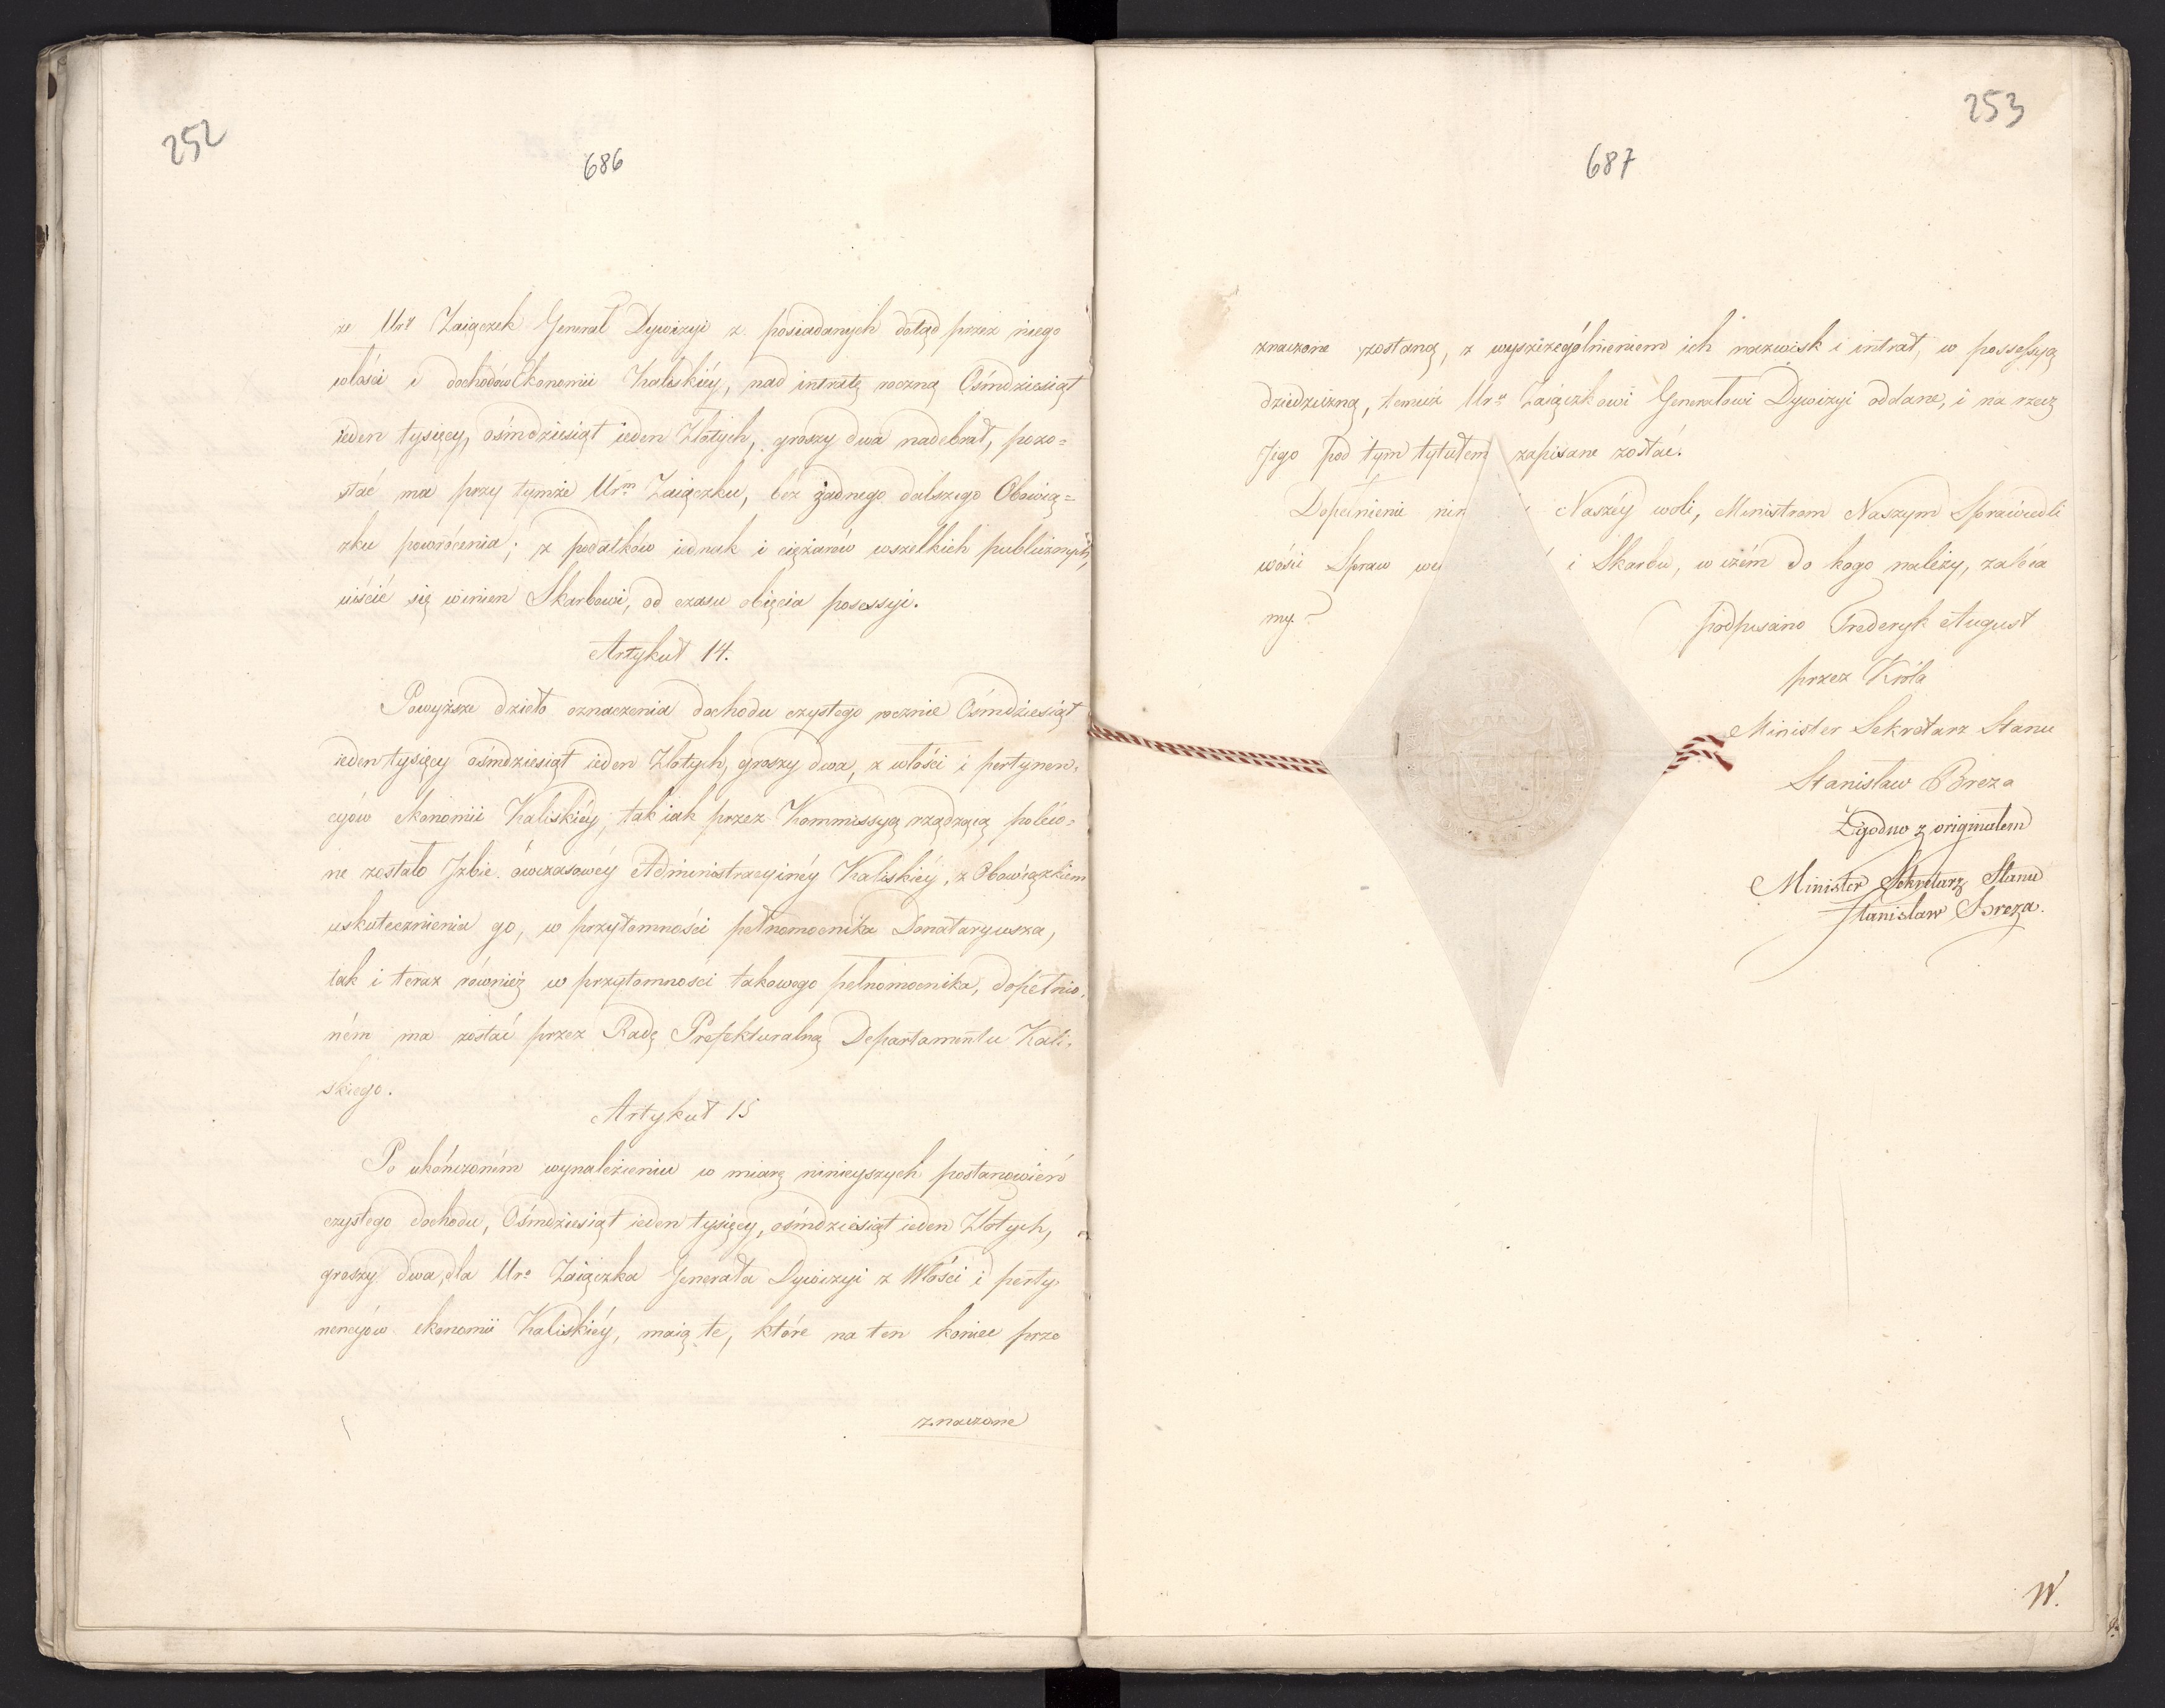 252
686
ze Ur. Zaiączek Generał Dywizyi z posiadanych dotąd przez niego
włości i dochodów Ekonomii Kaliskiéy, nad intratę roczną Ośmdziesiąt
ieden tysięcy, ośmdziesiąt ieden Złotych, groszy dwa nadebrał, pozo=
stać ma przy tymże Urm Zaiączku, bez żadnego dalszego Obowią=
zku powrócenia; z podatków iednak i ciężarów wszelkich publicznych,
uiścić się winien Skarbowi, od czasu obięcia posessyi.
Artykuł 14.
Powyższe dzieło oznaczenia dochodu czystego rocznie Ośmdziesiąt
ieden tysięcy ośmdziesiąt ieden Złotych, groszy dwa, z włości i pertynen=
cyów ekonomii Kaliskiéy, tak iak przez Kommissyą rządzącą poleco=
ne zostało Izbie ówczasowéy Administracyinéy Kaliskiéy, z Obowiązkiem
uskutecznienia go, w przytomności pełnomocnika Donataryusza,
tak i teraz również w przytomności takowego pełnomocnika, dopełnio=
ném ma zostać przez Radę Prefekturalną Departamentu Kali=
skiego.
Artykuł 15
Po ukończoném wynalezieniu w miarę ninieyszych postanowień
czystego dochodu, Ośmdziesiąt ieden tysięcy, ośmdziesiąt ieden Złotych,
groszy dwa, dla Uro Zaiączka Generała Dywizyi z Włości i perty=
nencyów ekonomii Kaliskiéy, maią te, które na ten koniec prze
znaczone
253
687
znaczone zostaną, z wyszczególnieniem ich nazwisk i intrat, w possessyą
dziedziczną, temuż Uru Zaiączkowi Generałowi Dywizyi oddane, i na rzecz
Jego pod tym tytułem zapisane zostać.
Dopełnienie nin Naszéy woli, Ministrom Naszym Sprawiedli
wości Spraw we i Skarbu, w czém do kogo należy, zaleca
my.
podpisano Frederyk August
przez Króla
Minister Sekretarz Stanu
Stanisław Breza
Zgodno z originałem
Minister Sekretarz Stanu
Stanisław Breza.
W.